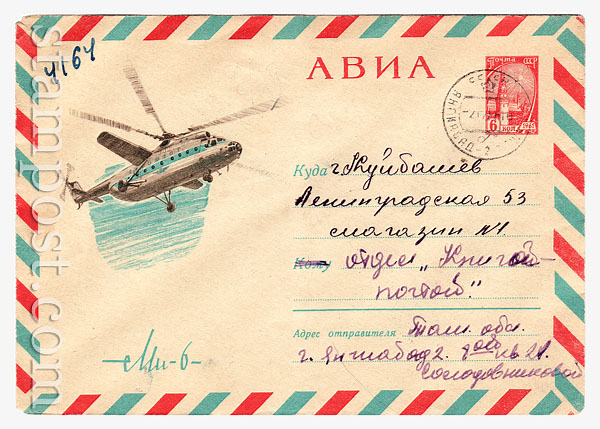 4164
АВИА
Почта СССР
6 коп
Куда г Куйбышев
Ленинградская 53
магазин N1
Кому отдел „Книгой-
почтой".
Адрес отправителя Таш. обл.
г. Янгиабад 2. кв 21.
Солодовниковой
Ми-6
stampost.com